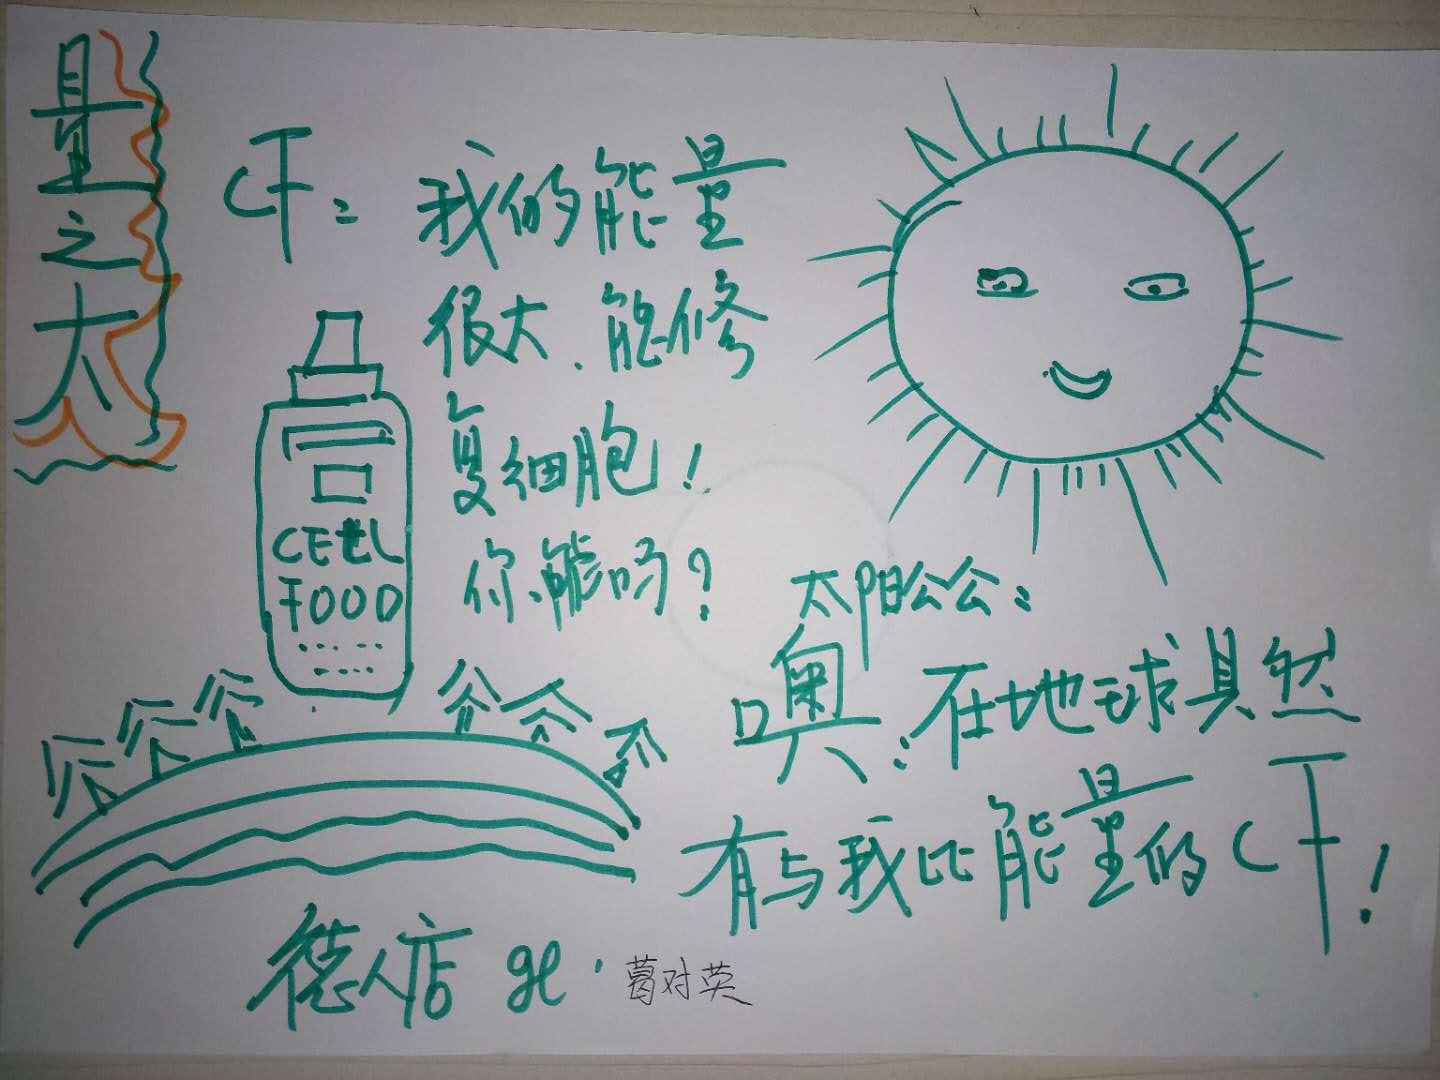 量之大
CF：我的能量
很大、能修
复细胞！
你能吗？
CELL
FOOD
太阳公公：
噢：在地球具然
有与我比能量的CF！
德人店 gl.葛对英